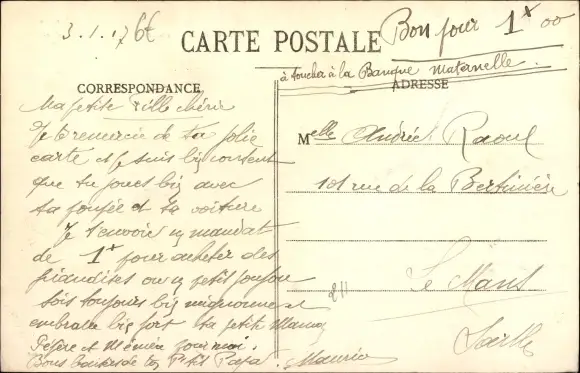 3.1.17
CARTE POSTALE
Bon pour 1 x 00
à toucher à la Banque Maternelle.
CORRESPONDANCE
ADRESSE
Ma petite fille chérie
Je te remercie de ta jolie
carte et je suis big content
que tu joues big avec
ta poupée et ta voiture
Je t'envoie un mandat
de 1 x pour acheter des
friandises ou un petit joujou
sois toujours big mignonne et
embrasse big fort ta petite Maman
Pépère et Mémère pour moi.
Bons baisers de ton P'tit Papa. Maurice
Melle Andrée Raoul
101 rue de la Bertinière
Le Mans
Sarthe